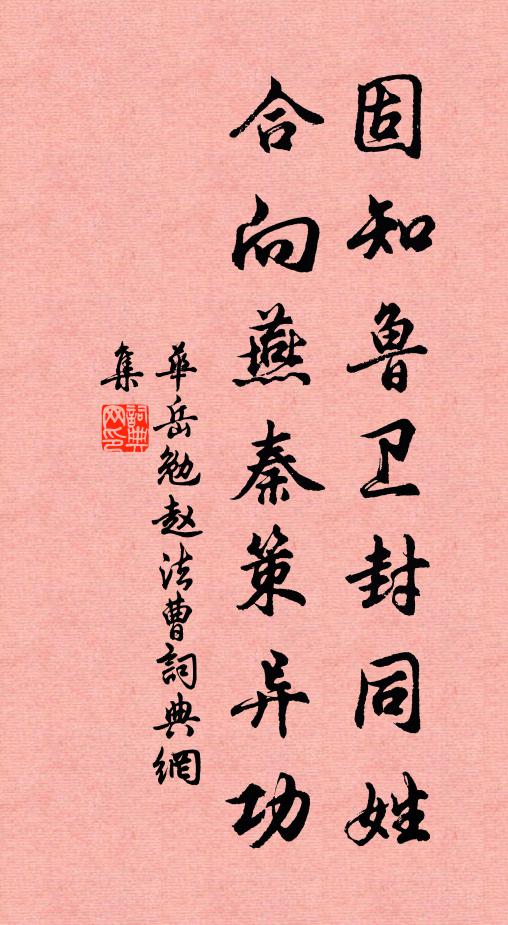 固知鲁卫封同姓
合向燕秦策异功
華岳勉赵法曹詞典網
集
詞典
网印